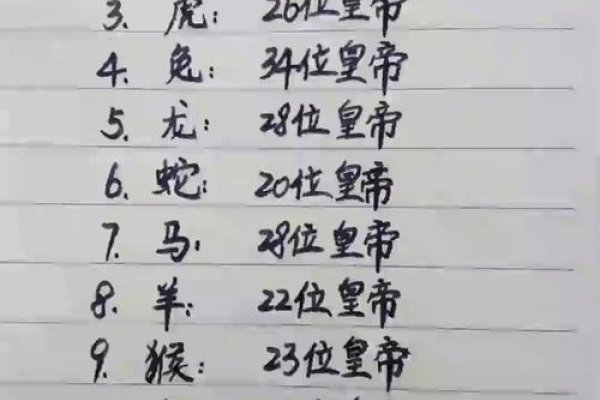 3. 虎: 26位皇帝
4. 兔: 34位皇帝
5. 龙: 28位皇帝
6. 蛇: 20位皇帝
7. 马: 28位皇帝
8. 羊: 22位皇帝
9. 猴: 23位皇帝